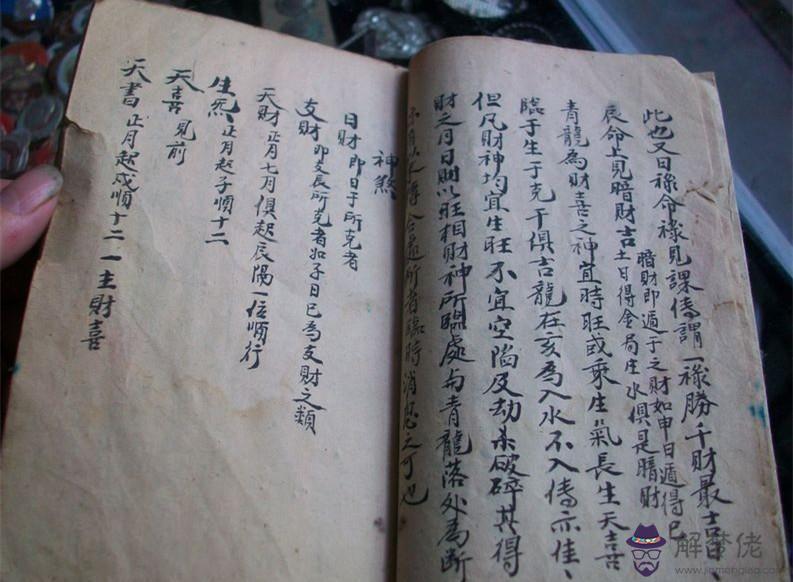 此也又日祿命祿見課傳謂一祿勝千財最吉日
辰命上見暗財吉
暗財即遁干之財如申日遁得巳
土日得金局庄水俱是暗財
青龍為財喜之神宜時旺或乘生氣長生天喜
臨于生于克干俱吉龍在亥為入水不入傳亦佳、
但凡財神均宜生旺不宜空陷及劫杀破碎其得
財之月日則以旺相財神所臨處与青龍落處為断
所者臨時消息之可也
神煞
日財 即日干所克者
支財 即支辰所克者如子日巳為支財之類
天財 正月七月俱起辰陽一位順行
生炁 正月起子順十二
天喜 見前
天書 正月起戌順十二 一主財喜
解梦佬